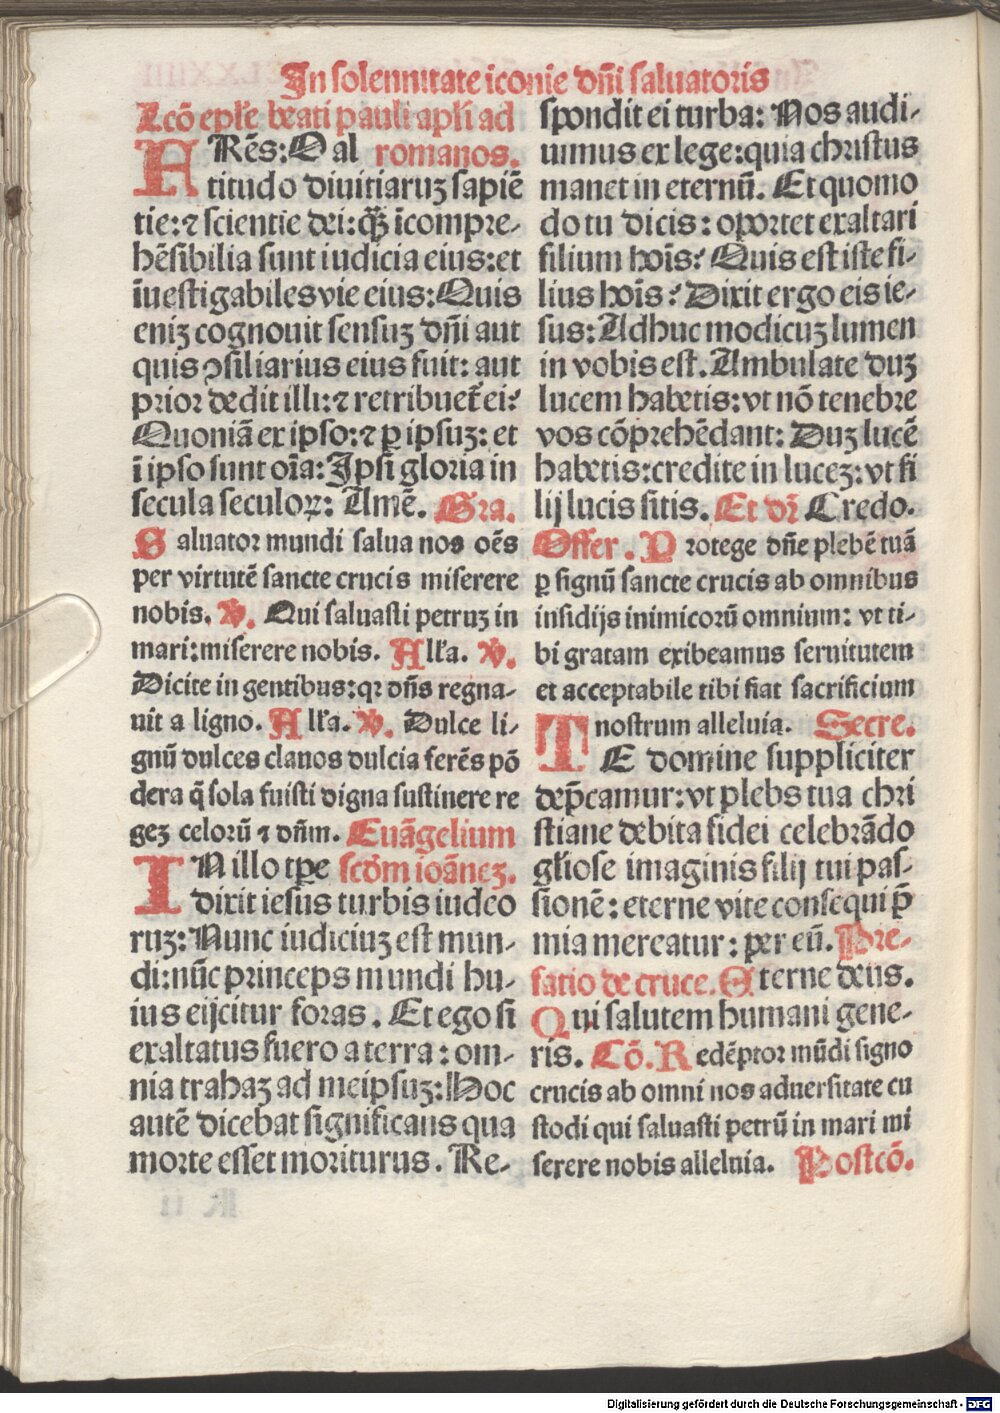 In solennitate iconie dñi saluatoris
Lcõ eple beati pauli apli ad
FRẽs: O al romanos.
titudo diuitiaruꝫ sapiẽ
tie: ⁊ scientie dei: q̃ꝫ ĩcompre-
hẽsibilia sunt iudicia eius: et
ĩuestigabiles vie eius: Quis
eniꝫ cognouit sensuꝫ dñi aut
quis ꝯsiliarius eius fuit: aut
prior dedit illi: ⁊ retribuet̃ ei?
Quoniã ex ipso: ⁊ ꝑ ipsuꝫ: et
ĩ ipso sunt oĩa: Ipsi gloria in
secula seculoꝝ: Amẽ. Gra.
Saluator mundi salua nos oẽs
per virtutẽ sancte crucis miserere
nobis. ℣. Qui saluasti petruꝫ in
mari: miserere nobis. Alla. ℣.
Dicite in gentibus: qꝛ dñs regna-
uit a ligno. Alla. ℣. Dulce li-
gnũ dulces clauos dulcia ferẽs põ
dera q̃ sola fuisti digna sustinere re
geꝫ celorũ ⁊ dñm. Euãgelium
IN illo tꝑe scðm ioãneꝫ.
dixit iesus turbis iudeo
ruꝫ: Nunc iudiciuꝫ est mun-
di: nũc princeps mundi hu-
ius eijcitur foras. Et ego si
exaltatus fuero a terra: om-
nia trahaꝫ ad meipsuꝫ: Hoc
autẽ dicebat significans qua
morte esset moriturus. Re-
spondit ei turba: Nos audi-
uimus ex lege: quia christus
manet in eternũ. Et quomo
do tu dicis: oportet exaltari
filium hoĩs? Quis est iste fi-
lius hoĩs? Dixit ergo eis ie-
sus: Adhuc modicuꝫ lumen
in vobis est. Ambulate duꝫ
lucem habetis: vt nõ tenebre
vos cõprehẽdant: Duꝫ lucẽ
habetis: credite in luceꝫ: vt fi
lij lucis sitis. Et dꝛ Credo.
Offer. Protege dñe plebẽ tuã
ꝑ signũ sancte crucis ab omnibus
insidijs inimicorũ omnium: vt ti-
bi gratam exibeamus seruitutem
et acceptabile tibi fiat sacrificium
nostrum alleluia. Secre.
TE domine suppliciter
dep̃camur: vt plebs tua chri
stiane debita fidei celebrãdo
gliose imaginis filij tui pas-
sionẽ: eterne vite consequi p̃
mia mereatur: per eũ. Pre-
fatio de cruce. Eterne deus.
Qui salutem humani gene-
ris. Cõ. Redẽptor mũdi signo
crucis ab omni nos aduersitate cu
stodi qui saluasti petrũ in mari mi
serere nobis alleluia. Postcõ.
Digitalisierung gefördert durch die Deutsche Forschungsgemeinschaft - DFG